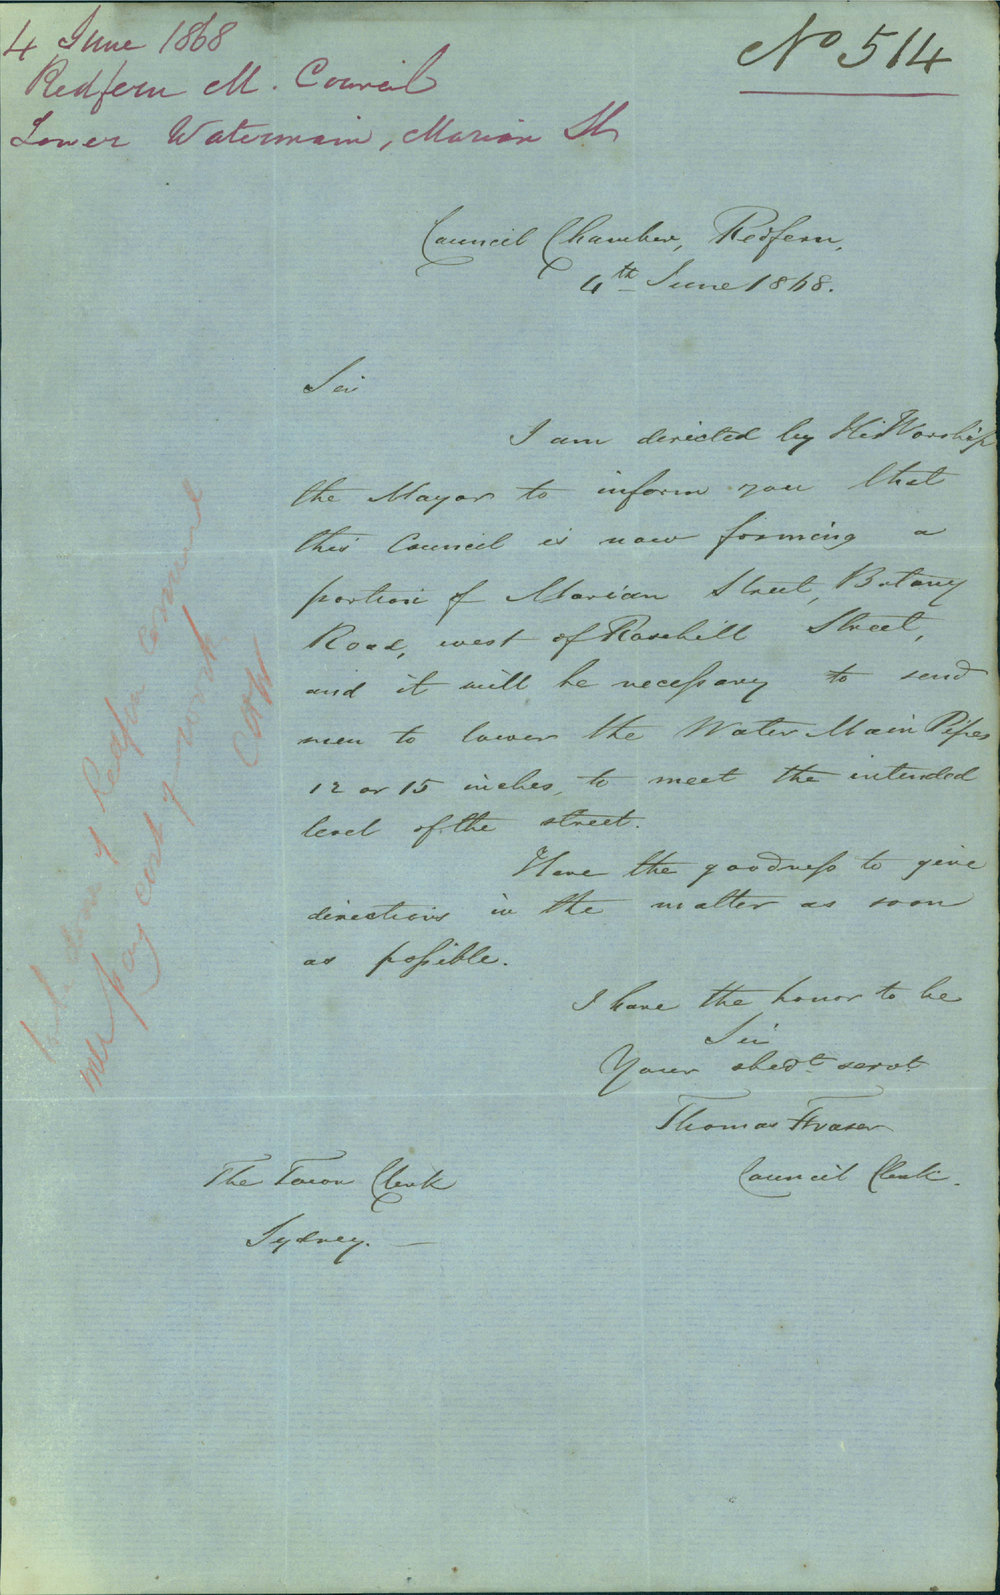 4 June 1868
Redfern M. Council
Lower Watermain, Marian St
No 514
Council Chamber, Redfern,
4th June 1868.
Sir
I am directed by His Worship
the Mayor to inform you that
this Council is now forming a
portion of Marian Street, Botany
Road, west of Rosehill Street,
and it will be necessary to send
men to lower the Water Main Pipes
12 or 15 inches, to meet the intended
level of the street.
Have the goodness to give
directions in the matter as soon
as possible.
I have the honor to be
Sir
Your obedt servt
Thomas Fraser
Council Clerk.
The Town Clerk
Sydney.
to be done if Redfern Council
pay cost of work